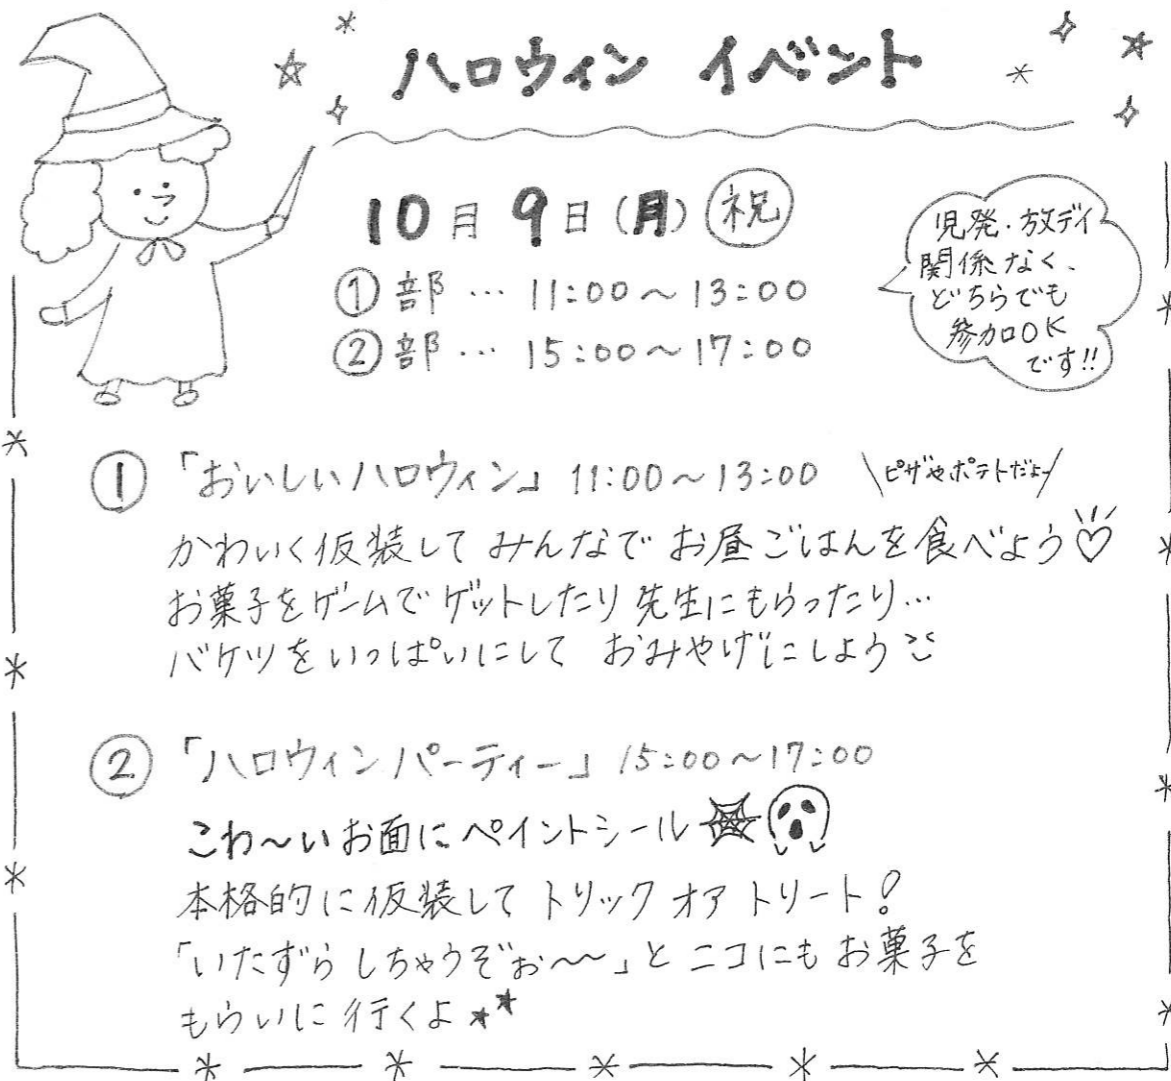 ハロウィン イベント
10月 9日(月)祝
①部… 11:00~13:00
②部… 15:00~17:00
児発・放デイ
関係なく、
どちらでも
参加OK
です!!
①「おいしいハロウィン」11:00~13:00 \ピザやポテトだよ/
かわいく仮装して みんなで お昼ごはんを食べよう♡
お菓子をゲームでゲットしたり 先生にもらったり…
バケツをいっぱいにして おみやげにしよう
②「ハロウィンパーティー」15:00~17:00
こわ~いお面にペイントシール
本格的に仮装して トリック オア トリート!
「いたずら しちゃうぞぉ~~」と ニコにも お菓子を
もらいに 行くよ★★